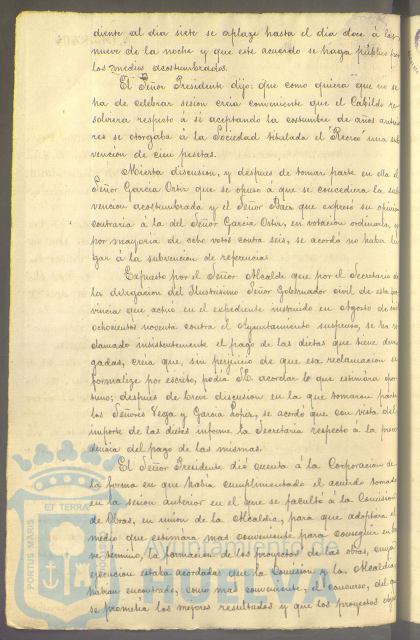 diente al dia siete se aplaze hasta el dia doce á las
nueve de la noche y que este acuerdo se haga público por
los medios acostumbrados.
El Señor Presidente dijo: que como quiera que no se
ha de celebrar sesion creia conveniente que el Cabildo re-
solviera respecto á si aceptando la costumbre de años anterio
res se otorgaba á la Sociedad titulada el "Recreo" una sub
vencion de cien pesetas.
Abierta discusion, y despues de tomar parte en ella el
Señor Garcia Ortiz que se opuso á que se concediera la sub
vencion acostumbrada y el Señor Baez que expresó su opinion
contraria á la del Señor Garcia Ortiz, en votacion ordinaria, y
por mayoria de ocho votos contra seis, se acordó no haber lu
gar á la subvencion de referencia.
Expuesto por el Señor Alcalde que por el Secretario de
la delegacion del Ilustrisimo Señor Gobernador civil de esta pro
vincia que actuó en el expediente instruido en Agosto de mil
ochocientos noventa contra el Ayuntamiento suspenso, se ha re
clamado insistentemente el pago de las dietas que tiene deven
gadas, creia que, sin perjuicio de que esa reclamacion se
formalize por escrito, podia S.E. acordar lo que estimára opor
tuno; despues de breve discusion en la que tomaron parte
los Señores Vega y Garcia Lopez, se acordó que con vista del
importe de las dietas informe la Secretaria respecto á la proce
dencia del pago de las mismas.
El Señor Presidente dió cuenta á la Corporacion de
la forma en que habia cumplimentado el acuerdo tomado
en la sesion anterior en el que se facultó á la Comision
de Obras, en union de la Alcaldia, para que adoptára el
medio que estimára mas conveniente para conseguir en bre
ve termino, la formacion de los proyectos de las obras, cuya
ejecucion estaba acordada que la Comision y la Alcaldia
habian encontrado, como mas conveniente, el concurso, del que
se prometia los mejores resultados y que los proyectos
PORTUS MARIS ET TERRAE
Ayuntamiento de
HUELVA